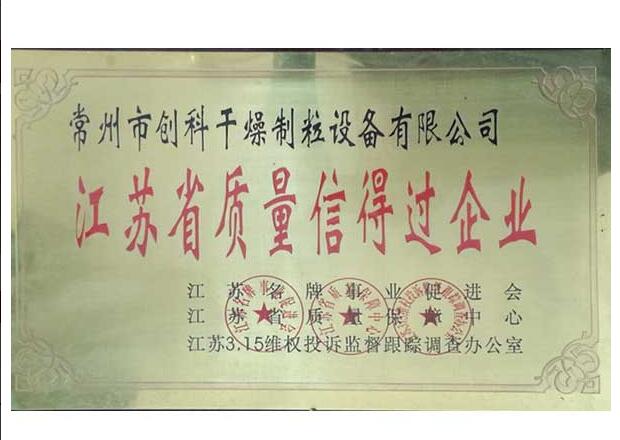 常州市创科干燥制粒设备有限公司
江苏省质量信得过企业
江苏名牌事业促进会
江苏省质量保障中心
江苏3.15维权投诉监督跟踪调查办公室